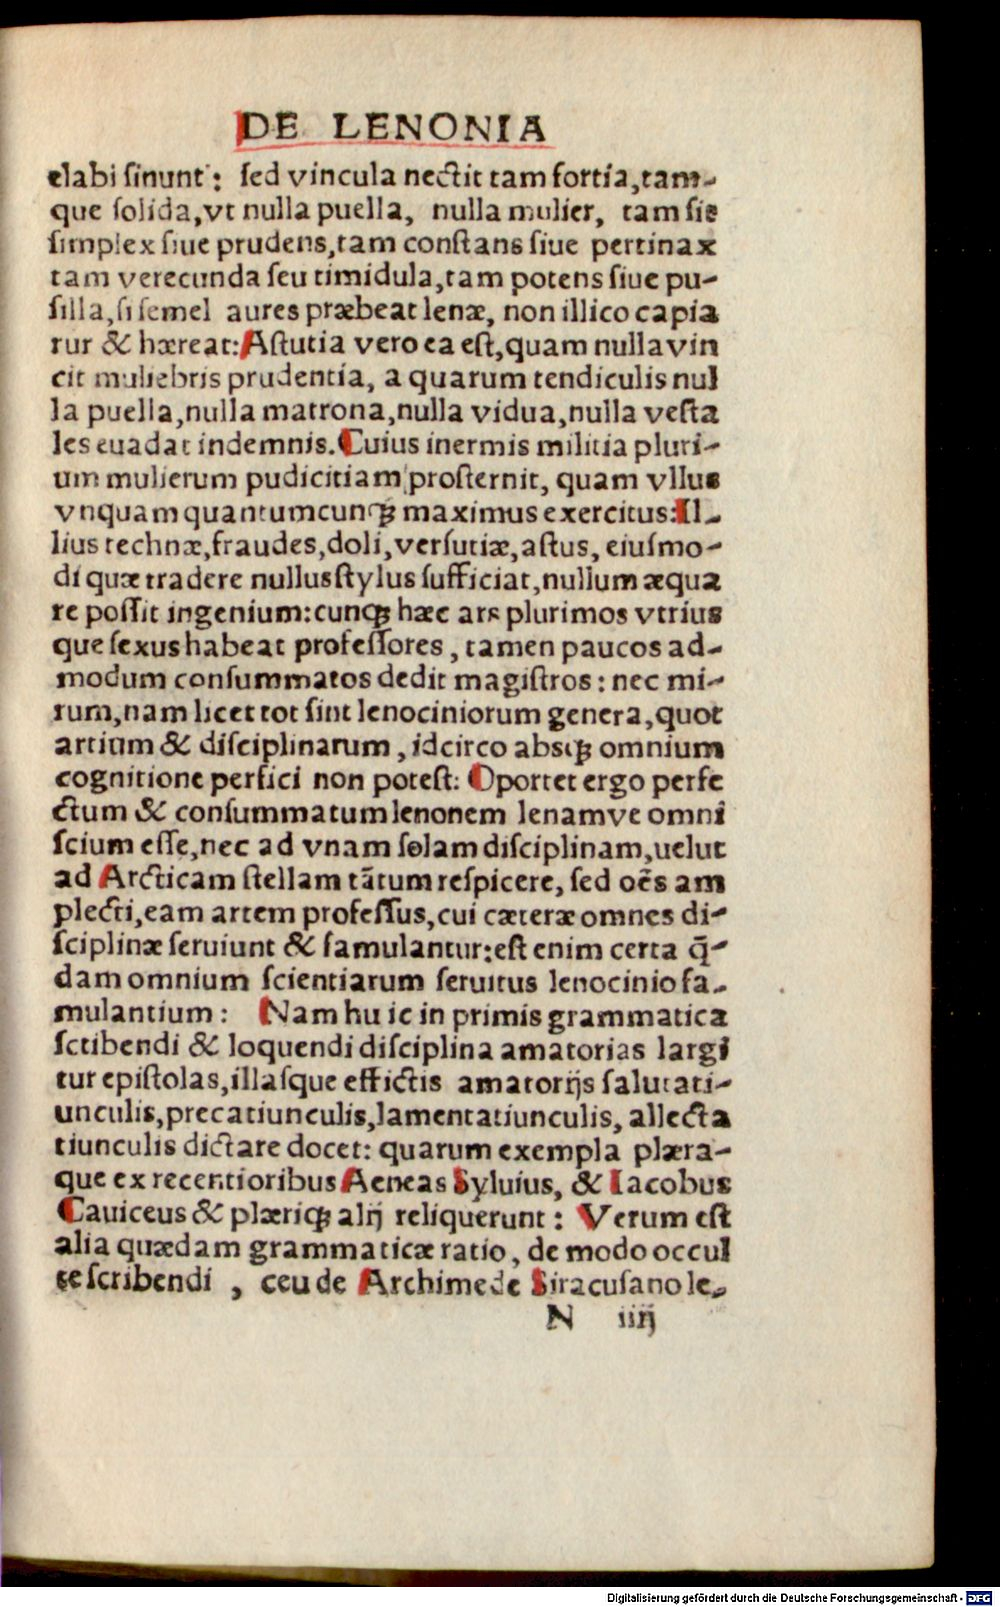 DE LENONIA
elabi sinunt: sed vincula nectit tam fortia, tam-
que solida, vt nulla puella, nulla mulier, tam sie
simplex siue prudens, tam constans siue pertinax
tam verecunda seu timidula, tam potens siue pu-
silla, si semel aures præbeat lenæ, non illico capia
tur & hæreat: Astutia vero ea est, quam nulla vin
cit muliebris prudentia, a quarum tendiculis nul
la puella, nulla matrona, nulla vidua, nulla vesta
les euadat indemnis. Cuius inermis militia pluri-
um mulierum pudicitiam prosternit, quam vllus
vnquam quantumcunqꝫ maximus exercitus: Il-
lius technæ, fraudes, doli, versutiæ, astus, eiusmo-
di quæ tradere nullus stylus sufficiat, nullum æqua
re possit ingenium: cunqꝫ hæc ars plurimos vtrius
que sexus habeat professores, tamen paucos ad-
modum consummatos dedit magistros: nec mi-
rum, nam licet tot sint lenociniorum genera, quot
artium & disciplinarum, idcirco absqꝫ omnium
cognitione perfici non potest: Oportet ergo perfe
ctum & consummatum lenonem lenamve omni
scium esse, nec ad vnam solam disciplinam, uelut
ad Arcticam stellam tātum respicere, sed oēs am
plecti, eam artem professus, cui cæteræ omnes di-
sciplinæ seruiunt & famulantur: est enim certa q̄-
dam omnium scientiarum seruitus lenocinio fa-
mulantium: Nam hu ic in primis grammatica
sctibendi & loquendi disciplina amatorias largi
tur epistolas, illasque effictis amatorijs salutati-
unculis, precatiunculis, lamentatiunculis, allecta
tiunculis dictare docet: quarum exempla plæra-
que ex recentioribus Aeneas Syluius, & Iacobus
Cauiceus & plæriqꝫ alij reliquerunt: Verum est
alia quædam grammaticæ ratio, de modo occul
te scribendi, ceu de Archimede Siracusano le-
N iiij
Digitalisierung gefördert durch die Deutsche Forschungsgemeinschaft - DFG